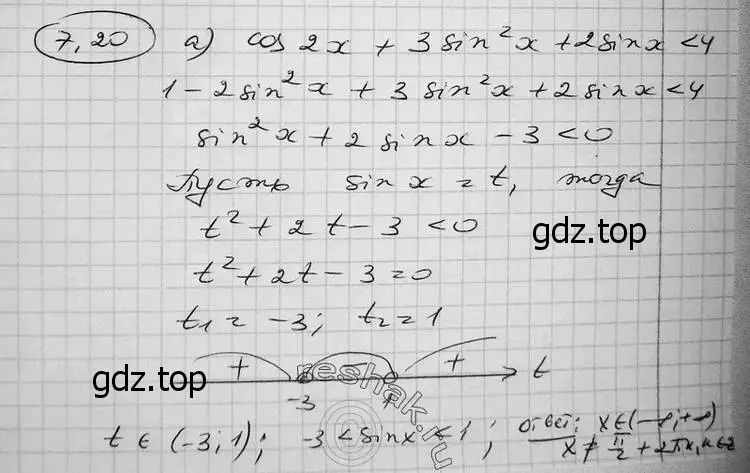 7,20 а) cos 2x + 3 sin²x + 2 sinx < 4
1 - 2 sin²x + 3 sin²x + 2 sinx < 4
sin²x + 2 sinx - 3 < 0
Пусть sin x = t, тогда
t² + 2t - 3 < 0
gdz.top
t² + 2t - 3 = 0
t₁ = -3; t₂ = 1
+ + t
gdz.top reshak.ru
-3 1
t ∈ (-3; 1); -3 < sinx < 1; ответ: x ∈ (-∞; +∞)
x ≠ π/2 + 2πn, n ∈ Z